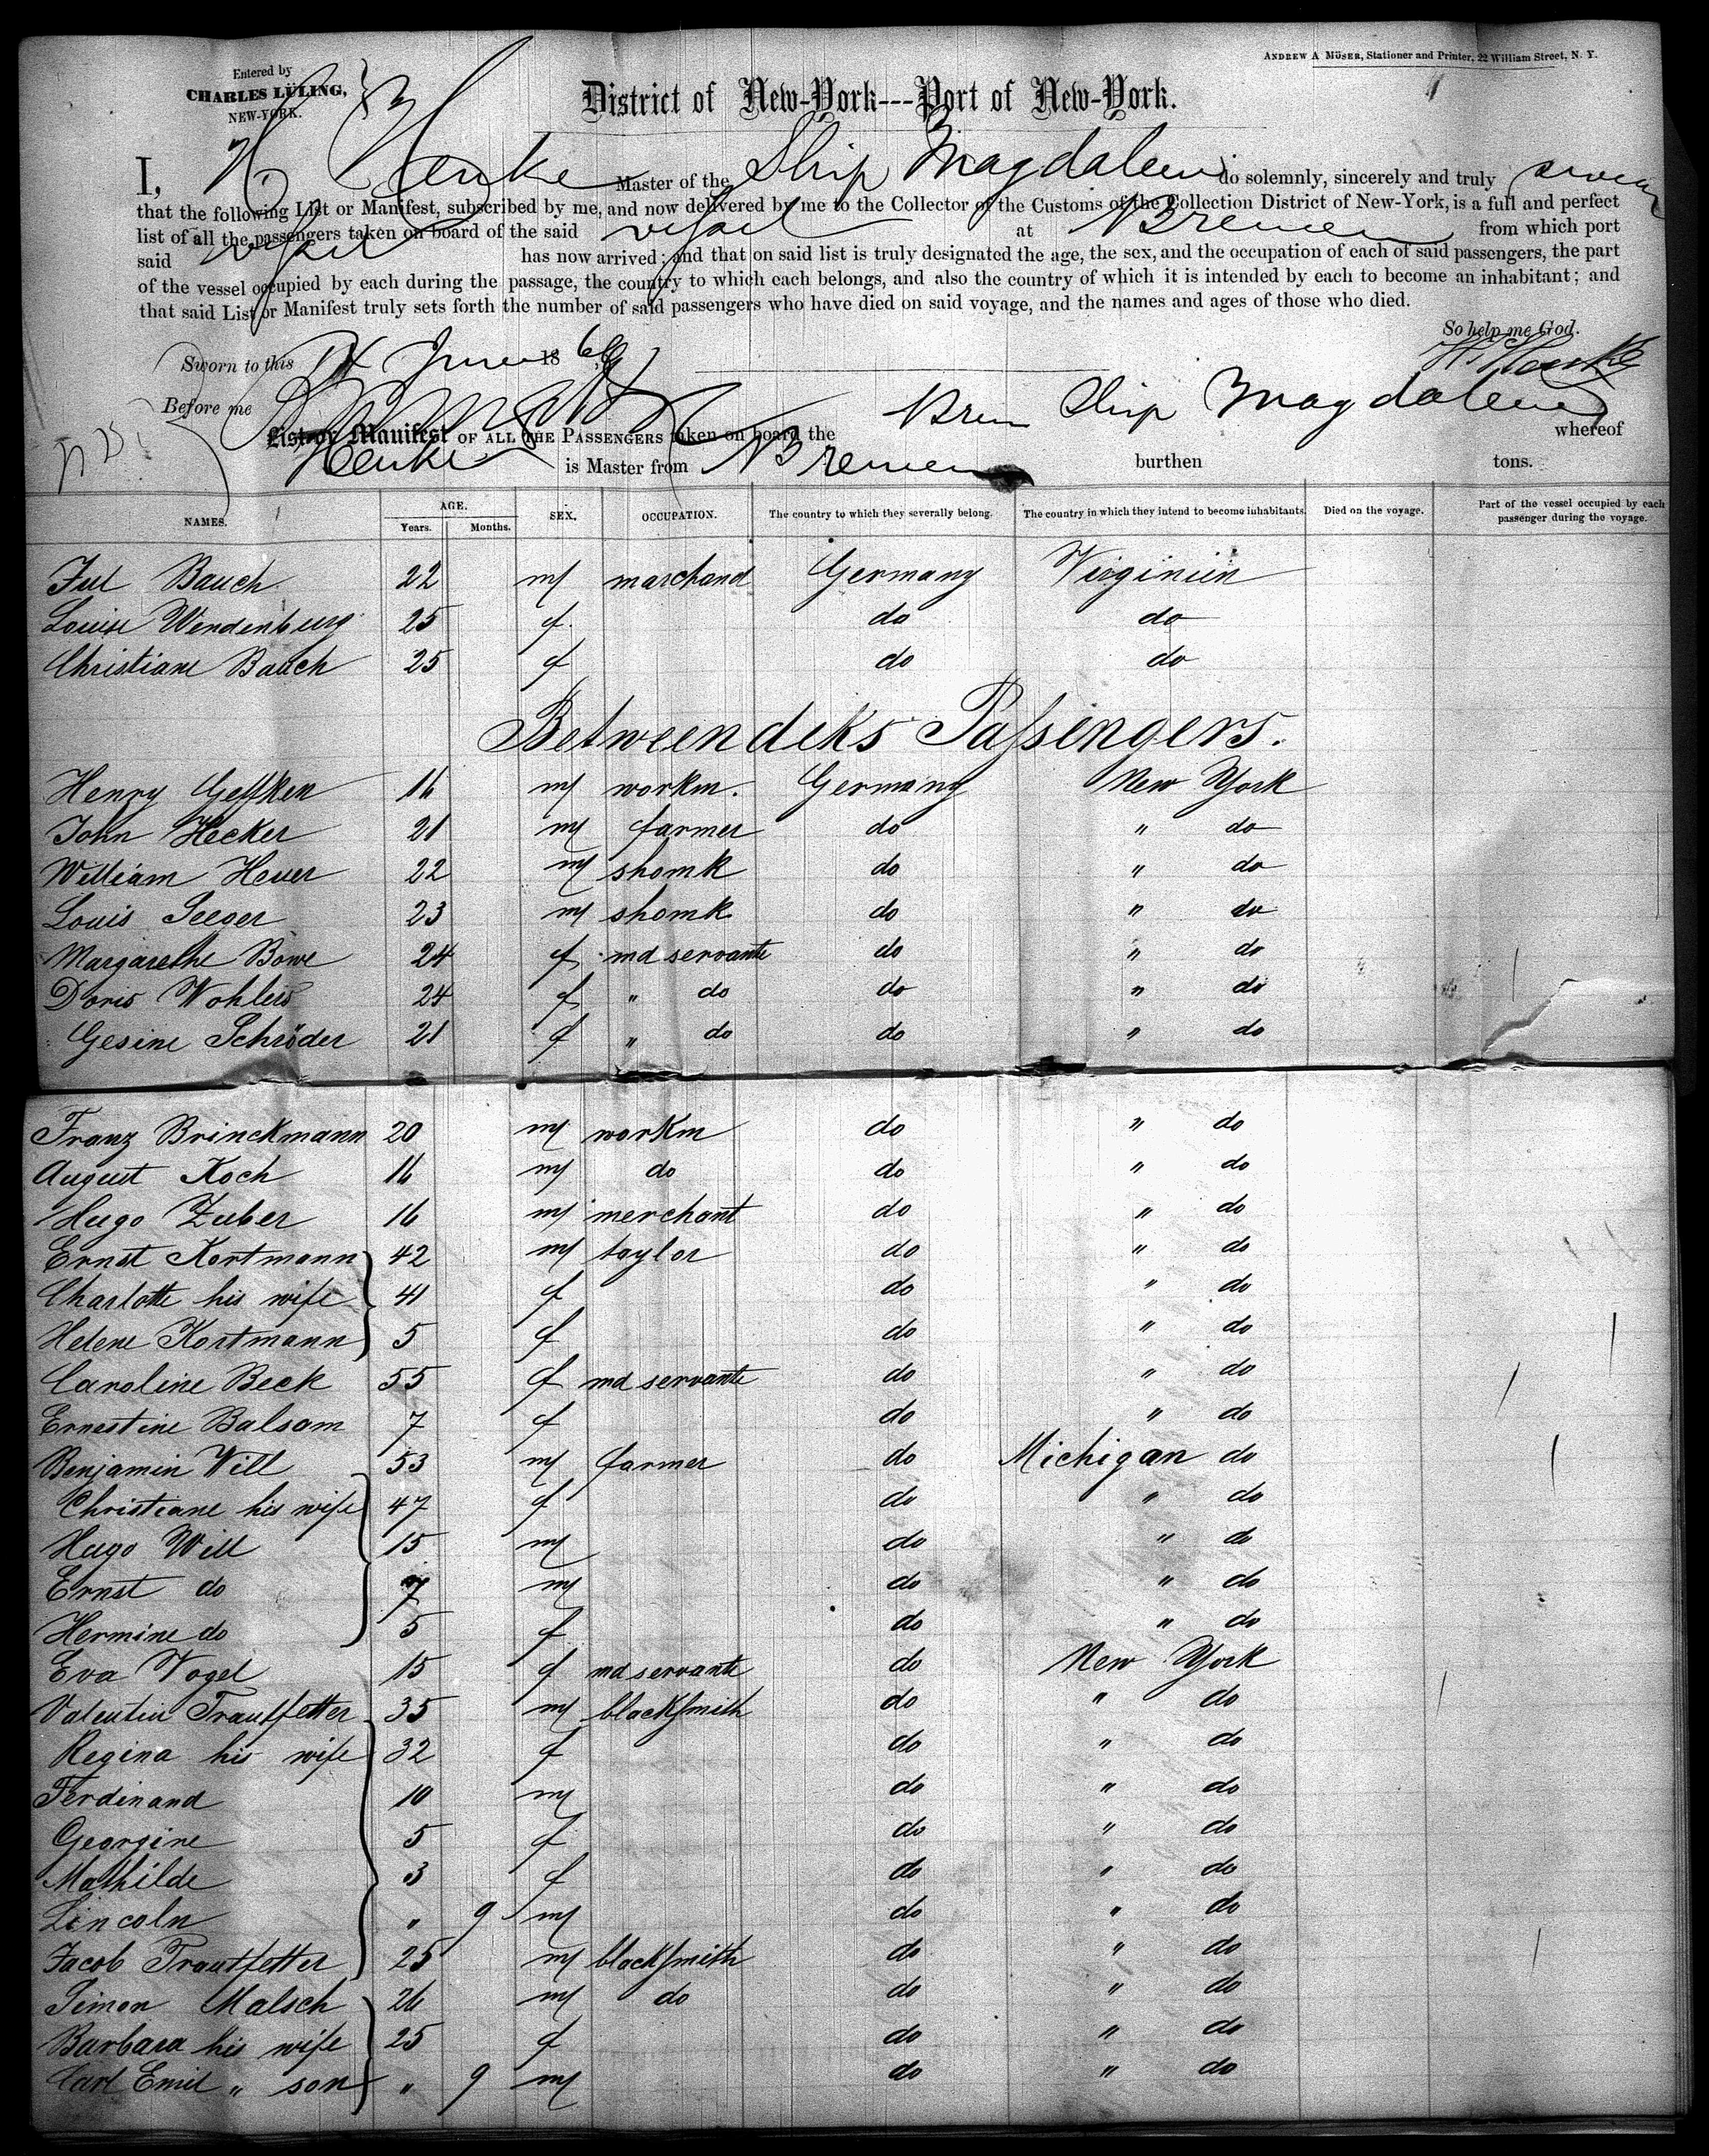 ANDREW A MÖSER, Stationer and Printer, 22 William Street, N. Y.
Entered by
CHARLES LÜLING,
NEW-YORK.
District of New-York---Port of New-York.
I, H Henke Master of the Ship Magdalene do solemnly, sincerely and truly swear
that the following List or Manifest, subscribed by me, and now delivered by me to the Collector of the Customs of the Collection District of New-York, is a full and perfect
list of all the passengers taken on board of the said vessel at Bremen from which port
said vessel has now arrived; and that on said list is truly designated the age, the sex, and the occupation of each of said passengers, the part
of the vessel occupied by each during the passage, the country to which each belongs, and also the country of which it is intended by each to become an inhabitant; and
that said List or Manifest truly sets forth the number of said passengers who have died on said voyage, and the names and ages of those who died.
So help me God.
Sworn to this June 18 H Henke
Before me
Brem Ship Magdalene
List or Manifest OF ALL THE PASSENGERS taken on board the whereof
Henke is Master from Bremen burthen tons.
NAMES. AGE. Years. Months. SEX. OCCUPATION. The country to which they severally belong. The country in which they intend to become inhabitants. Died on the voyage. Part of the vessel occupied by each passenger during the voyage.
Jul Bauch 22 m marchand Germany Virginien
Louise Wendenburg 25 f. do do
Christiane Bauch 25 f do do
Betweendeks Passengers.
Henry Geffken 16 m workm. Germany New York
John Hecker 21 m farmer do " do
William Heuer 22 m shomk do " do
Louis Seeger 23 m shomk do " do
Margarethe Böwe 24 f md servante do " do
Doris Wohlers 24 f " do do " do
Gesine Schröder 21 f " do do " do
Franz Brinckmann 20 m workm do " do
August Koch 16 m do do " do
Hugo Zuber 16 m merchant do " do
Ernst Kortmann 42 m taylor do " do
Charlotte his wife 41 f do " do
Helene Kortmann 5 f do " do
Caroline Beck 55 f md servante do " do
Ernestine Balsam 7 f do " do
Benjamin Will 53 m farmer do Michigan do
Christiane his wife 47 f do " do
Hugo Will 15 m do " do
Ernst do 7 m do " do
Hermine do 5 f do " do
Eva Vogel 15 f md servante do New York
Valentin Trautfetter 35 m blacksmith do " do
Regina his wife 32 f do " do
Ferdinand 10 m do " do
Georgine 5 f do " do
Mathilde 3 f do " do
Lincoln " 9 m do " do
Jacob Trautfetter 25 m blacksmith do " do
Simon Malsch 26 m do do " do
Barbara his wife 25 f do " do
Carl Emil " son " 9 m do " do